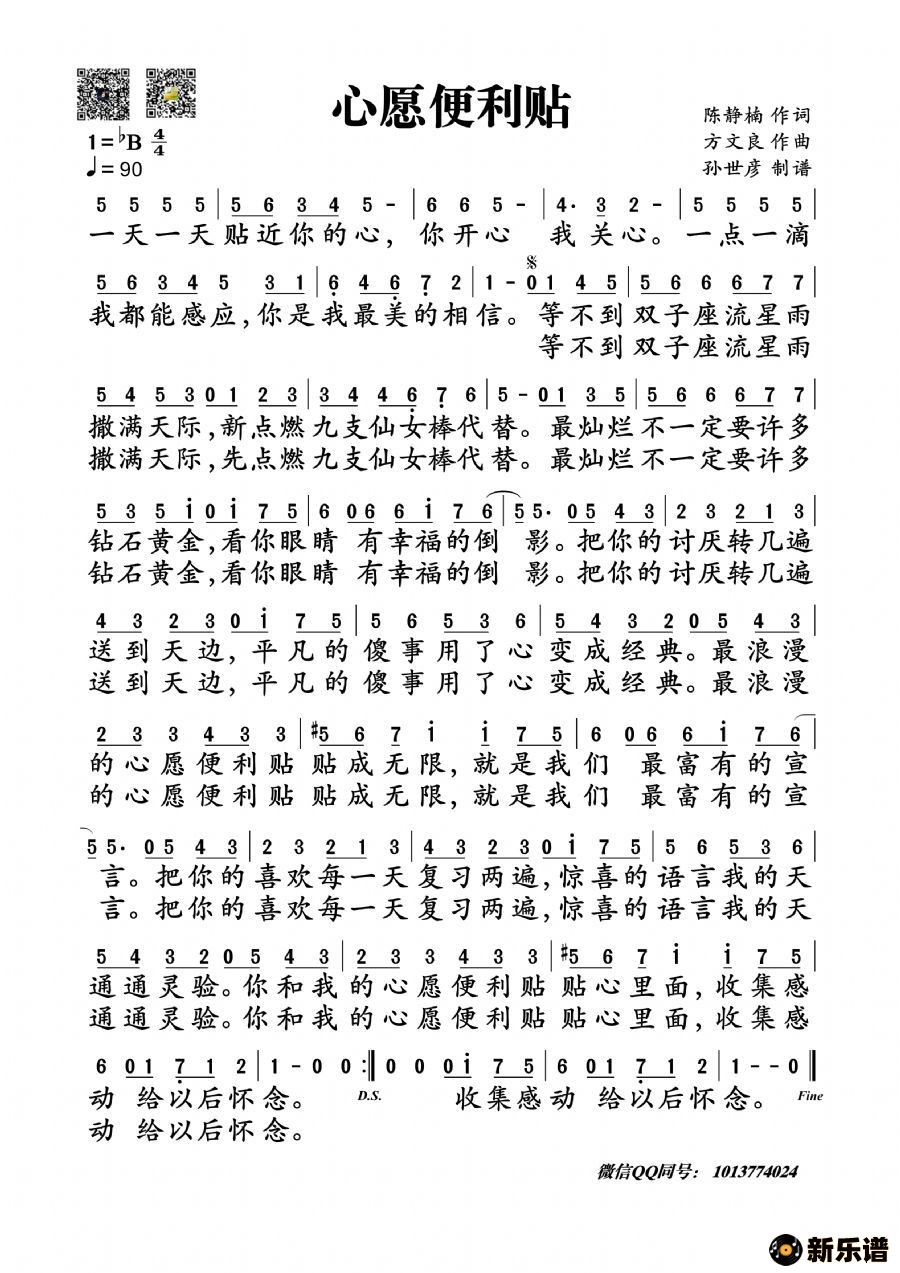 心愿便利贴
陈静楠 作词
1=♭B 4/4
方文良 作曲
♩=90
孙世彦 制谱
5 5 5 5 | 5 6 3 4 5 - | 6 6 5 - | 4· 3 2 - | 5 5 5 5 |
一天一天贴近你的心，你开心 我关心。一点一滴
5 6 3 4 5 3 1 | 6 4 6 7 2 | 1 - 0 1 4 5 | 5 6 6 6 7 7 |
我都能感应，你是我最美的相信。等不到双子座流星雨
等不到双子座流星雨
5 4 5 3 0 1 2 3 | 3 4 4 6 7 6 | 5 - 0 1 3 5 | 5 6 6 6 7 7 |
撒满天际，新点燃九支仙女棒代替。最灿烂不一定要许多
撒满天际，先点燃九支仙女棒代替。最灿烂不一定要许多
5 3 5 i 0 i 7 5 | 6 0 6 6 i 7 6 | 5 5· 0 5 4 3 | 2 3 2 1 3 |
钻石黄金，看你眼睛 有幸福的倒 影。把你的讨厌转几遍
钻石黄金，看你眼睛 有幸福的倒 影。把你的讨厌转几遍
4 3 2 3 0 i 7 5 | 5 6 5 3 6 | 5 4 3 2 0 5 4 3 |
送到天边，平凡的傻事用了心变成经典。最浪漫
送到天边，平凡的傻事用了心变成经典。最浪漫
2 3 3 4 3 3 | #5 6 7 i i 7 5 | 6 0 6 6 i 7 6 |
的心愿便利贴贴成无限，就是我们 最富有的宣
的心愿便利贴贴成无限，就是我们 最富有的宣
5 5· 0 5 4 3 | 2 3 2 1 3 | 4 3 2 3 0 i 7 5 | 5 6 5 3 6 |
言。把你的喜欢每一天复习两遍，惊喜的语言我的天
言。把你的喜欢每一天复习两遍，惊喜的语言我的天
5 4 3 2 0 5 4 3 | 2 3 3 4 3 3 | #5 6 7 i i 7 5 |
通通灵验。你和我的心愿便利贴贴心里面，收集感
通通灵验。你和我的心愿便利贴贴心里面，收集感
6 0 1 7 1 2 | 1 - 0 0 :‖ 0 0 0 i 7 5 | 6 0 1 7 1 2 | 1 - - 0 ‖
动 给以后怀念。 D.S. 收集感动 给以后怀念。 Fine
动 给以后怀念。
微信QQ同号： 1013774024
新乐谱